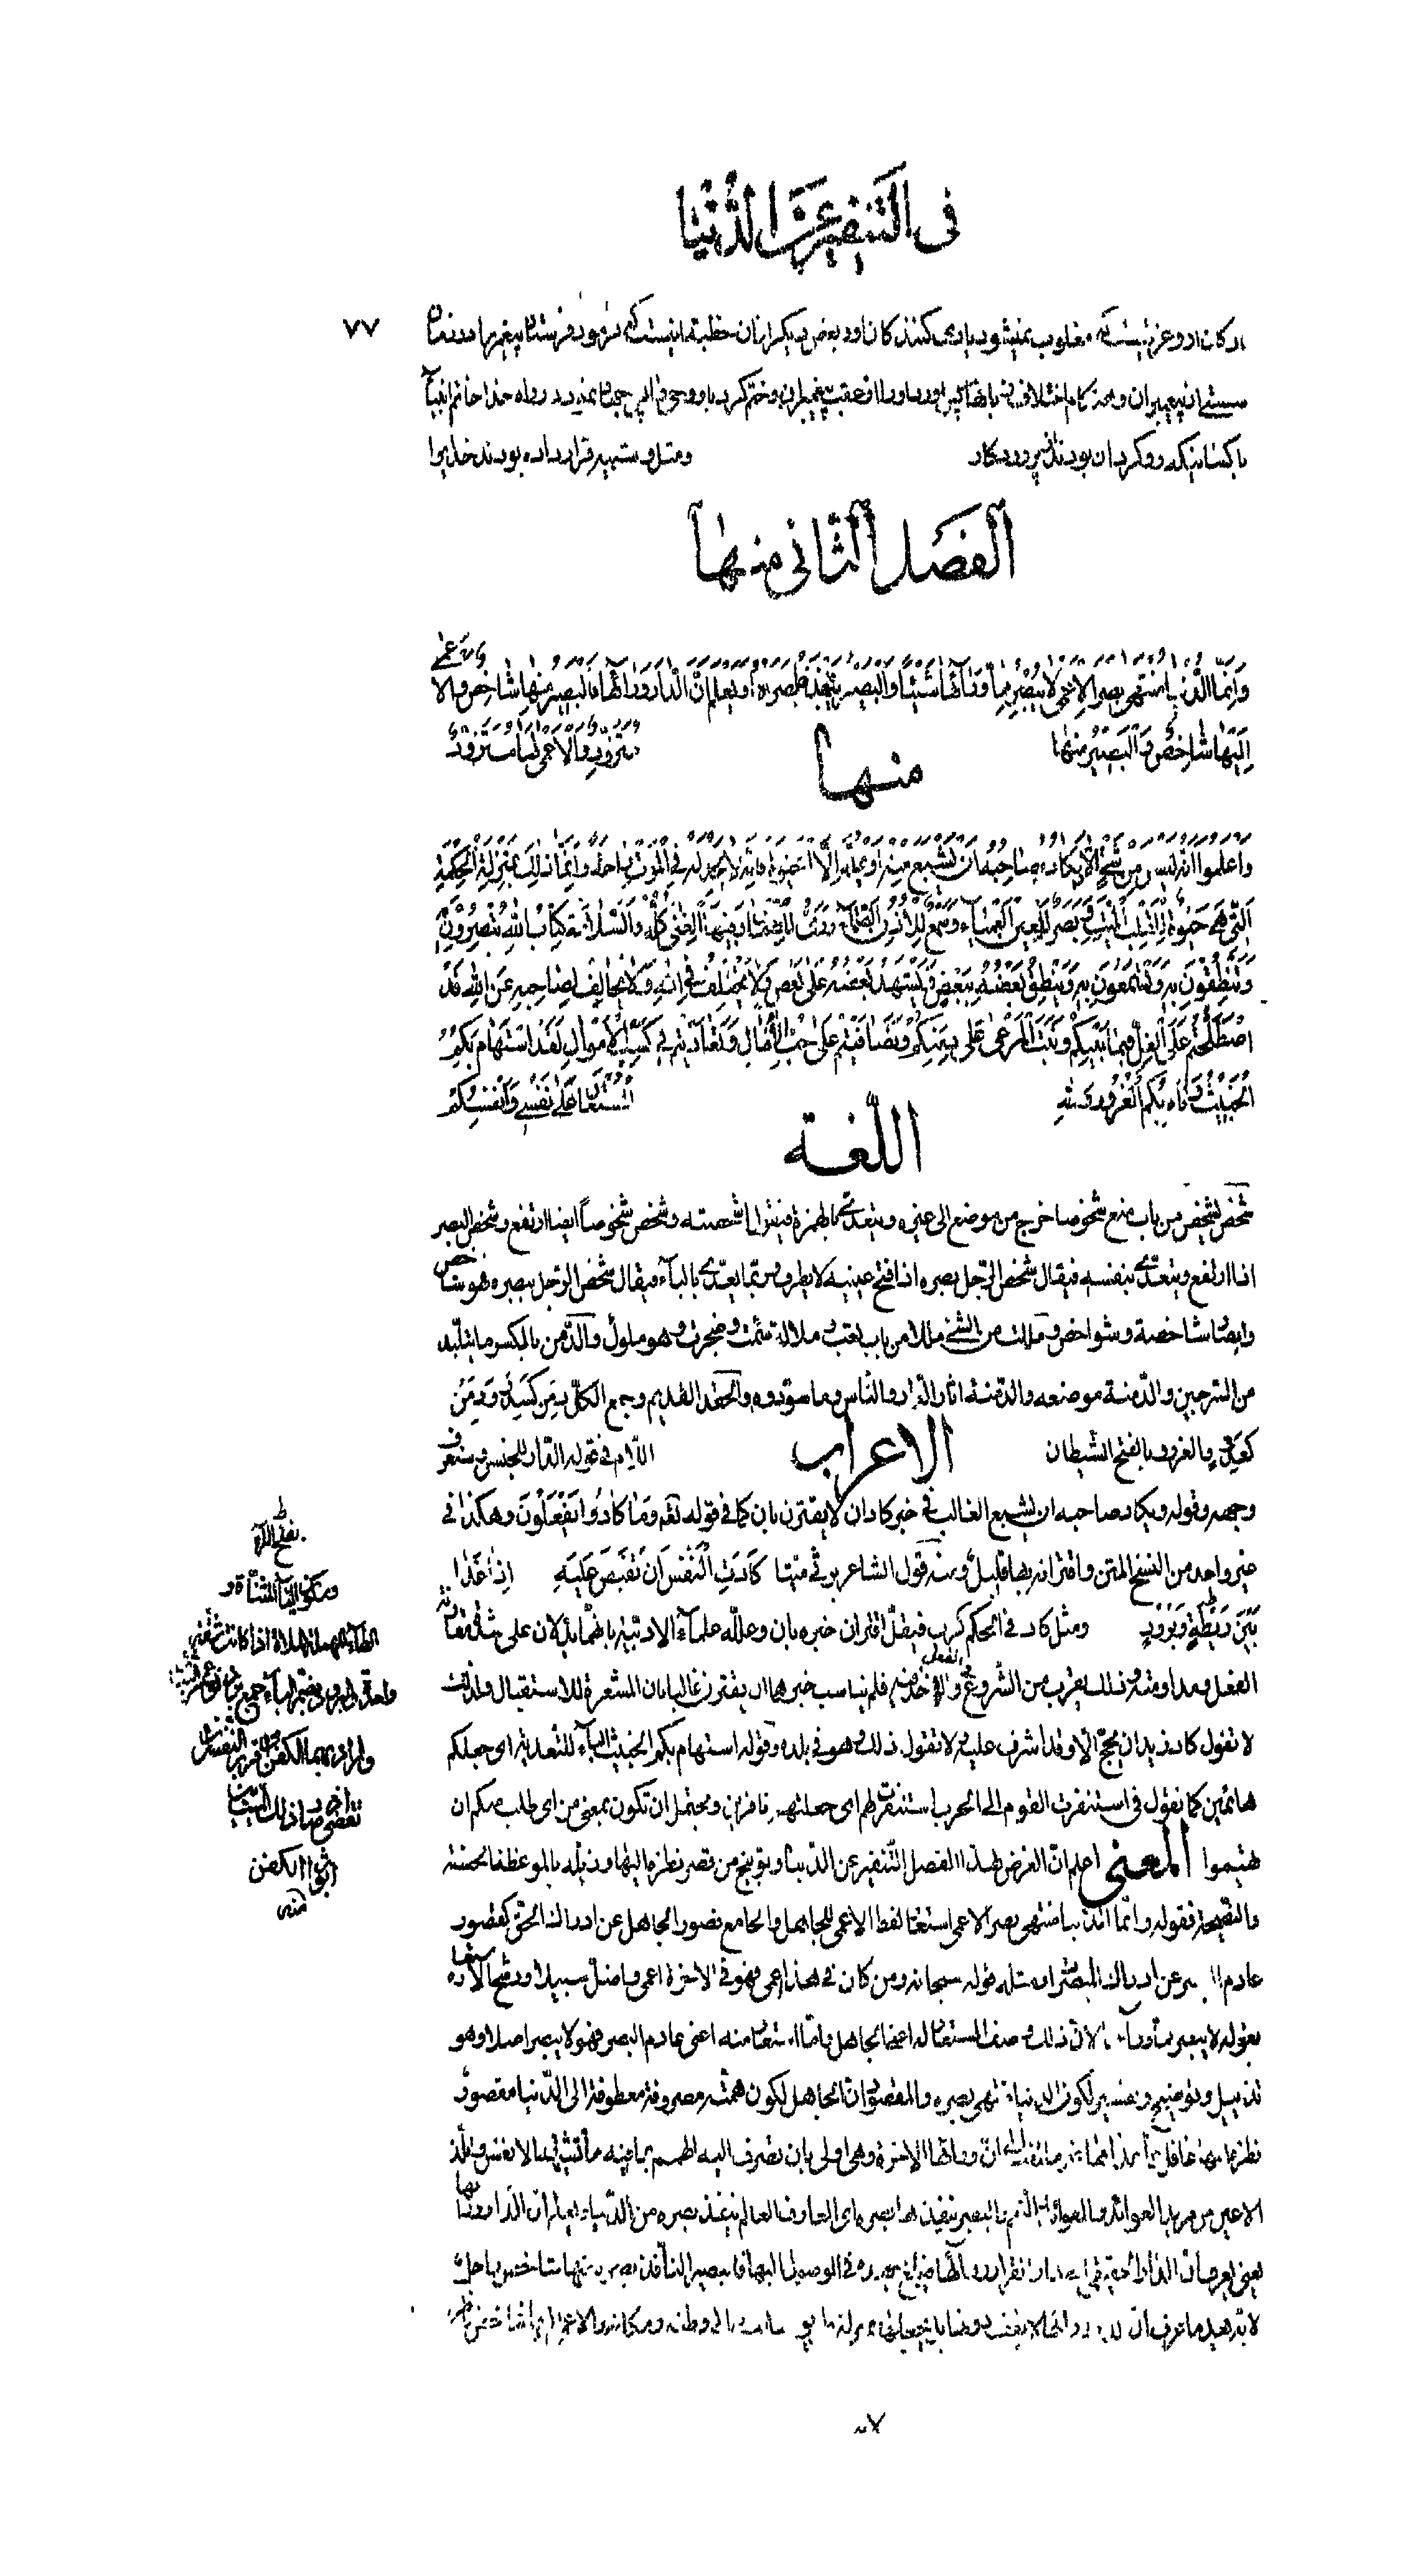 فى التنفير عن الدنيا
٧٧
اركان او و عزيزيست كه مغلوب نميشود يارى كنندكان او و بعض ديكر از ان خطبه اينست كه فرمود فرستاد پيغمبر را در زمان
سستى از پيغمبران و هنكام اختلاف زبانها پس آورد او را از عقب پيغمبران و ختم كرد باو وحى را پس جهاد نمود در راه خدا خاتم انبيآ
با كسانيكه روكردان بودند از پروردكار
ومثل و شبيه قرار داده بودند خدا را
الفصل الثّانى منها
وَاِنَّمَا الدُّنْيا مُنْتَهى بَصَرِ الاَعْمى لا يُبْصِرُ مِمّا وَرآئَها شَيْئاً وَالْبَصيرُ يَنْفُذُها بَصَرُهُ وَيَعْلَمُ اَنَّ الدّارَ وَرآئَها فَالْبَصيرُ مِنْها شاخِصٌ وَالاَعْمى
اِلَيْها شاخِصٌ وَالْبَصيرُ مِنْها
مُتَزَوِّدٌ وَالاَعْمى لَها مُتَزَوِّدٌ
منها
وَاعْلَمُوا اَنَّهُ لَيْسَ مِنْ شَىْءٍ اِلاّ وَيَكادُ صاحِبُهُ اَنْ يَشْبَعَ مِنْهُ اَوْ يَمَلَّهُ اِلاّ الْحَيوةَ فَاِنَّهُ لا يَجِدُ لَهُ فِى الْمَوْتِ راحَةً وَاِنَّما ذلِكَ بِمَنْزِلَةِ الْحِكْمَةِ
الَّتى هِىَ حَيوةٌ لِلْقَلْبِ الْمَيِّتِ وَبَصَرٌ لِلْعَيْنِ الْعَمْيآءِ وَسَمْعٌ لِلاُذُنِ الصَّمّآءِ وَرَىٌّ لِلظَّمْانِ وَفيهَا الْغِنى كُلُّهُ وَالسَّلامَةُ كِتابُ اللهِ تُبْصِرُونَ بِهِ
وَتَنْطِقُونَ بِهِ وَتَسْمَعُونَ بِهِ وَيَنْطِقُ بَعْضُهُ بِبَعْضٍ وَيَشْهَدُ بَعْضُهُ عَلى بَعْضٍ وَلا يَخْتَلِفُ فِى اللهِ وَلا يُخالِفُ بِصاحِبِهِ عَنِ اللهِ قَدِ
اصْطَلَحْتُمْ عَلَى الْغِلِّ فيما بَيْنَكُمْ وَنَبَتَ الْمَرْعى عَلى دِمَنِكُمْ وَتَصافَيْتُمْ عَلى حُبِّ الآمالِ وَتَعادَيْتُمْ فى كَسْبِ الاَمْوالِ لَقَدِ اسْتَهامَ بِكُمُ
الْخَبيثُ وَتاهَ بِكُمُ الْغُرُورُ وَاللهُ
الْمُسْتَعانُ عَلى نَفْسى وَاَنْفُسِكُمْ
اللّغة
شخص يشخص من باب منع شخوصا خرج من موضع الى غيره ويتعدّى بالهمزة فيقال اشخصته وشخص شخوصاً ايضا ارتفع وشخص البصر
اذا ارتفع ويتعدّى بنفسه فيقال شخص الرّجل بصره اذا فتح عينيه لا يطرف وربّما يعدّى بالبآء فيقال شخص الرّجل ببصره فهو شاخص
وابصار شاخصة وشواخص ومللت من الشئ مللا من باب تعب وملالة سئمت وضجرت وهو ملول والدّمن بالكسر ما يتلبّد
من السّرجين والدّمنة موضعه والدّمنة اثار الدّار والنّاس وما سوّدوه والحقد القديم وجمع الكلّ دِمَن كسِدَر ودِمْن
كعِدْق والغرور بالفتح الشّيطان
الاعراب
اللاّم فى قوله الدّار للجنس وستعرف
وجهه وقوله ويكاد صاحبه ان يشبع الغالب فى خبر كاد ان لا يقترن بان كما فى قوله تعـ وَما كادُوا يَفْعَلُونَ وهكذا فى
غير واحد من النّسخ المتن واقترانه بها قليل ومنه قول الشاعر يرثى ميّتا كادَتِ النَّفْسُ اَنْ تَفيضَ عَلَيْهِ اِذْ غَدا
بَيْنَ رَيْطَةٍ وَبُرُودٍ ومثل كاد فى الحكم كرب فيقلّ اقتران خبره بان وعلّله علمآء الادبيّة بانّهما يدلاّن على شدّة مقاربة
الفعل ومداومته وذلك يقرب من الشّروع فى الفعل والاخذ فيه فلم يناسب خبرهما ان يقترن غالبا بان المشعرة للاستقبال ولذلك
لا تقول كاد زيد ان يحجّ الاّ وقد اشرف عليه ولا تقول ذلك وهو فى بلده وقوله استهام بكم الخبيث البآء للتعدية اى جعلكم
هائمين كما تقول فى استنفرت القوم الى الحرب استنفرتهم اى جعلتهم نافرين ويحتمل ان تكون بمعنى من اى طلب منكم ان
تهيموا المعنى اعلم انّ الغرض بهذا الفصل التّنفير عن الدّنيا وتوبيخ من قصر نظره اليها وذيّله بالموعظة الحسنة
والنّصيحة فقوله وانّما الدّنيا منتهى بصر الاعمى استعار لفظ الاعمى للجاهل والجامع قصور الجاهل عن ادراك الحقّ كقصور
عادم البصر عن ادراك المبصرات ومثله قوله سبحانه ومن كان فى هذه اعمى فهو فى الاخرة اعمى واضلّ سبيلا ورشّح الاستعارة
بقوله لا يبصر ممّا ورآء ها لانّ ذلك وصف المستعار له اعنى الجاهل وامّا المستعار منه اعنى عادم البصر فهو لا يبصر اصلا وهو
تذييل وتوضيح وتفسير لكون الدّنيا منتهى بصره والمقصود انّ الجاهل لكون همّته مصروفة معطوفة الى الدّنيا مقصور
نظره اليها غافل عمّا عداها غير ملتفت الى انّ ورائها الاخرة وهى اولى بان تصرف اليه الهمم بما فيه ما تشتهيه الانفس وتلذّ
الاعين من والبصير ينفذها بصره اى العارف العالم ينفذ بصره من الدّنيا ويعلم انّ الدّار ورائها
يعنى يعرف انّ الدّار الحقيقيّة اى دار القرار ورآئها فيبلغ جهده فى الوصول اليها فالبصير النّافذ بصره منها شاخص راحل
لانّه بعد ما عرف انّ وطنه ومكانه والاعمى اليها شاخص
بفتح الرّآء
وسكون اليآء المثنّاة و
الطّآء المهملة الملاة اذا كانت شقّة
واحدة والبرود بضمّ البآء جمع برد نوع من الثّياب
واراد بهما الكفن
اثواب الكفن
منه
٧